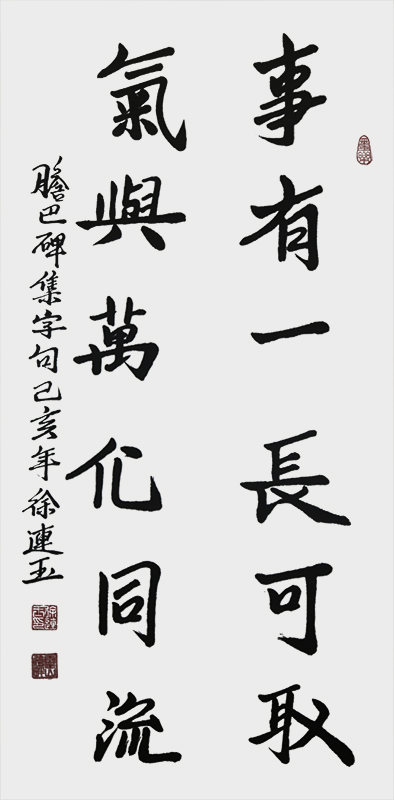 事有一長可取
氣與萬化同流
膽巴碑集字句己亥年徐連玉